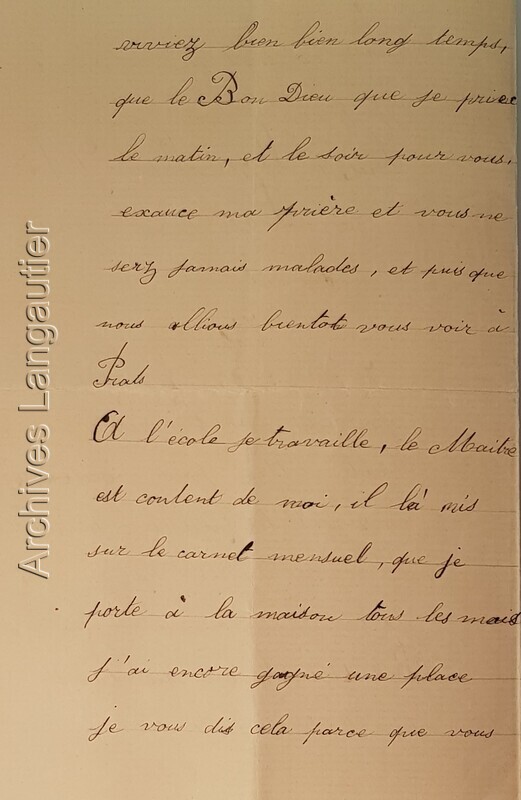 viviez bien bien long temps,
que le Bon Dieu que je prie
le matin, et le soir pour vous,
exauce ma prière et vous ne
serz jamais malades, et puis que
nous allions bientot vous voir à
Prats
A l'école je travaille, le Maitre
est content de moi, il là mis
sur le carnet mensuel, que je
porte à la maison tous les mois
j'ai encore gagné une place
je vous dis cela parce que vous
Archives Langautier